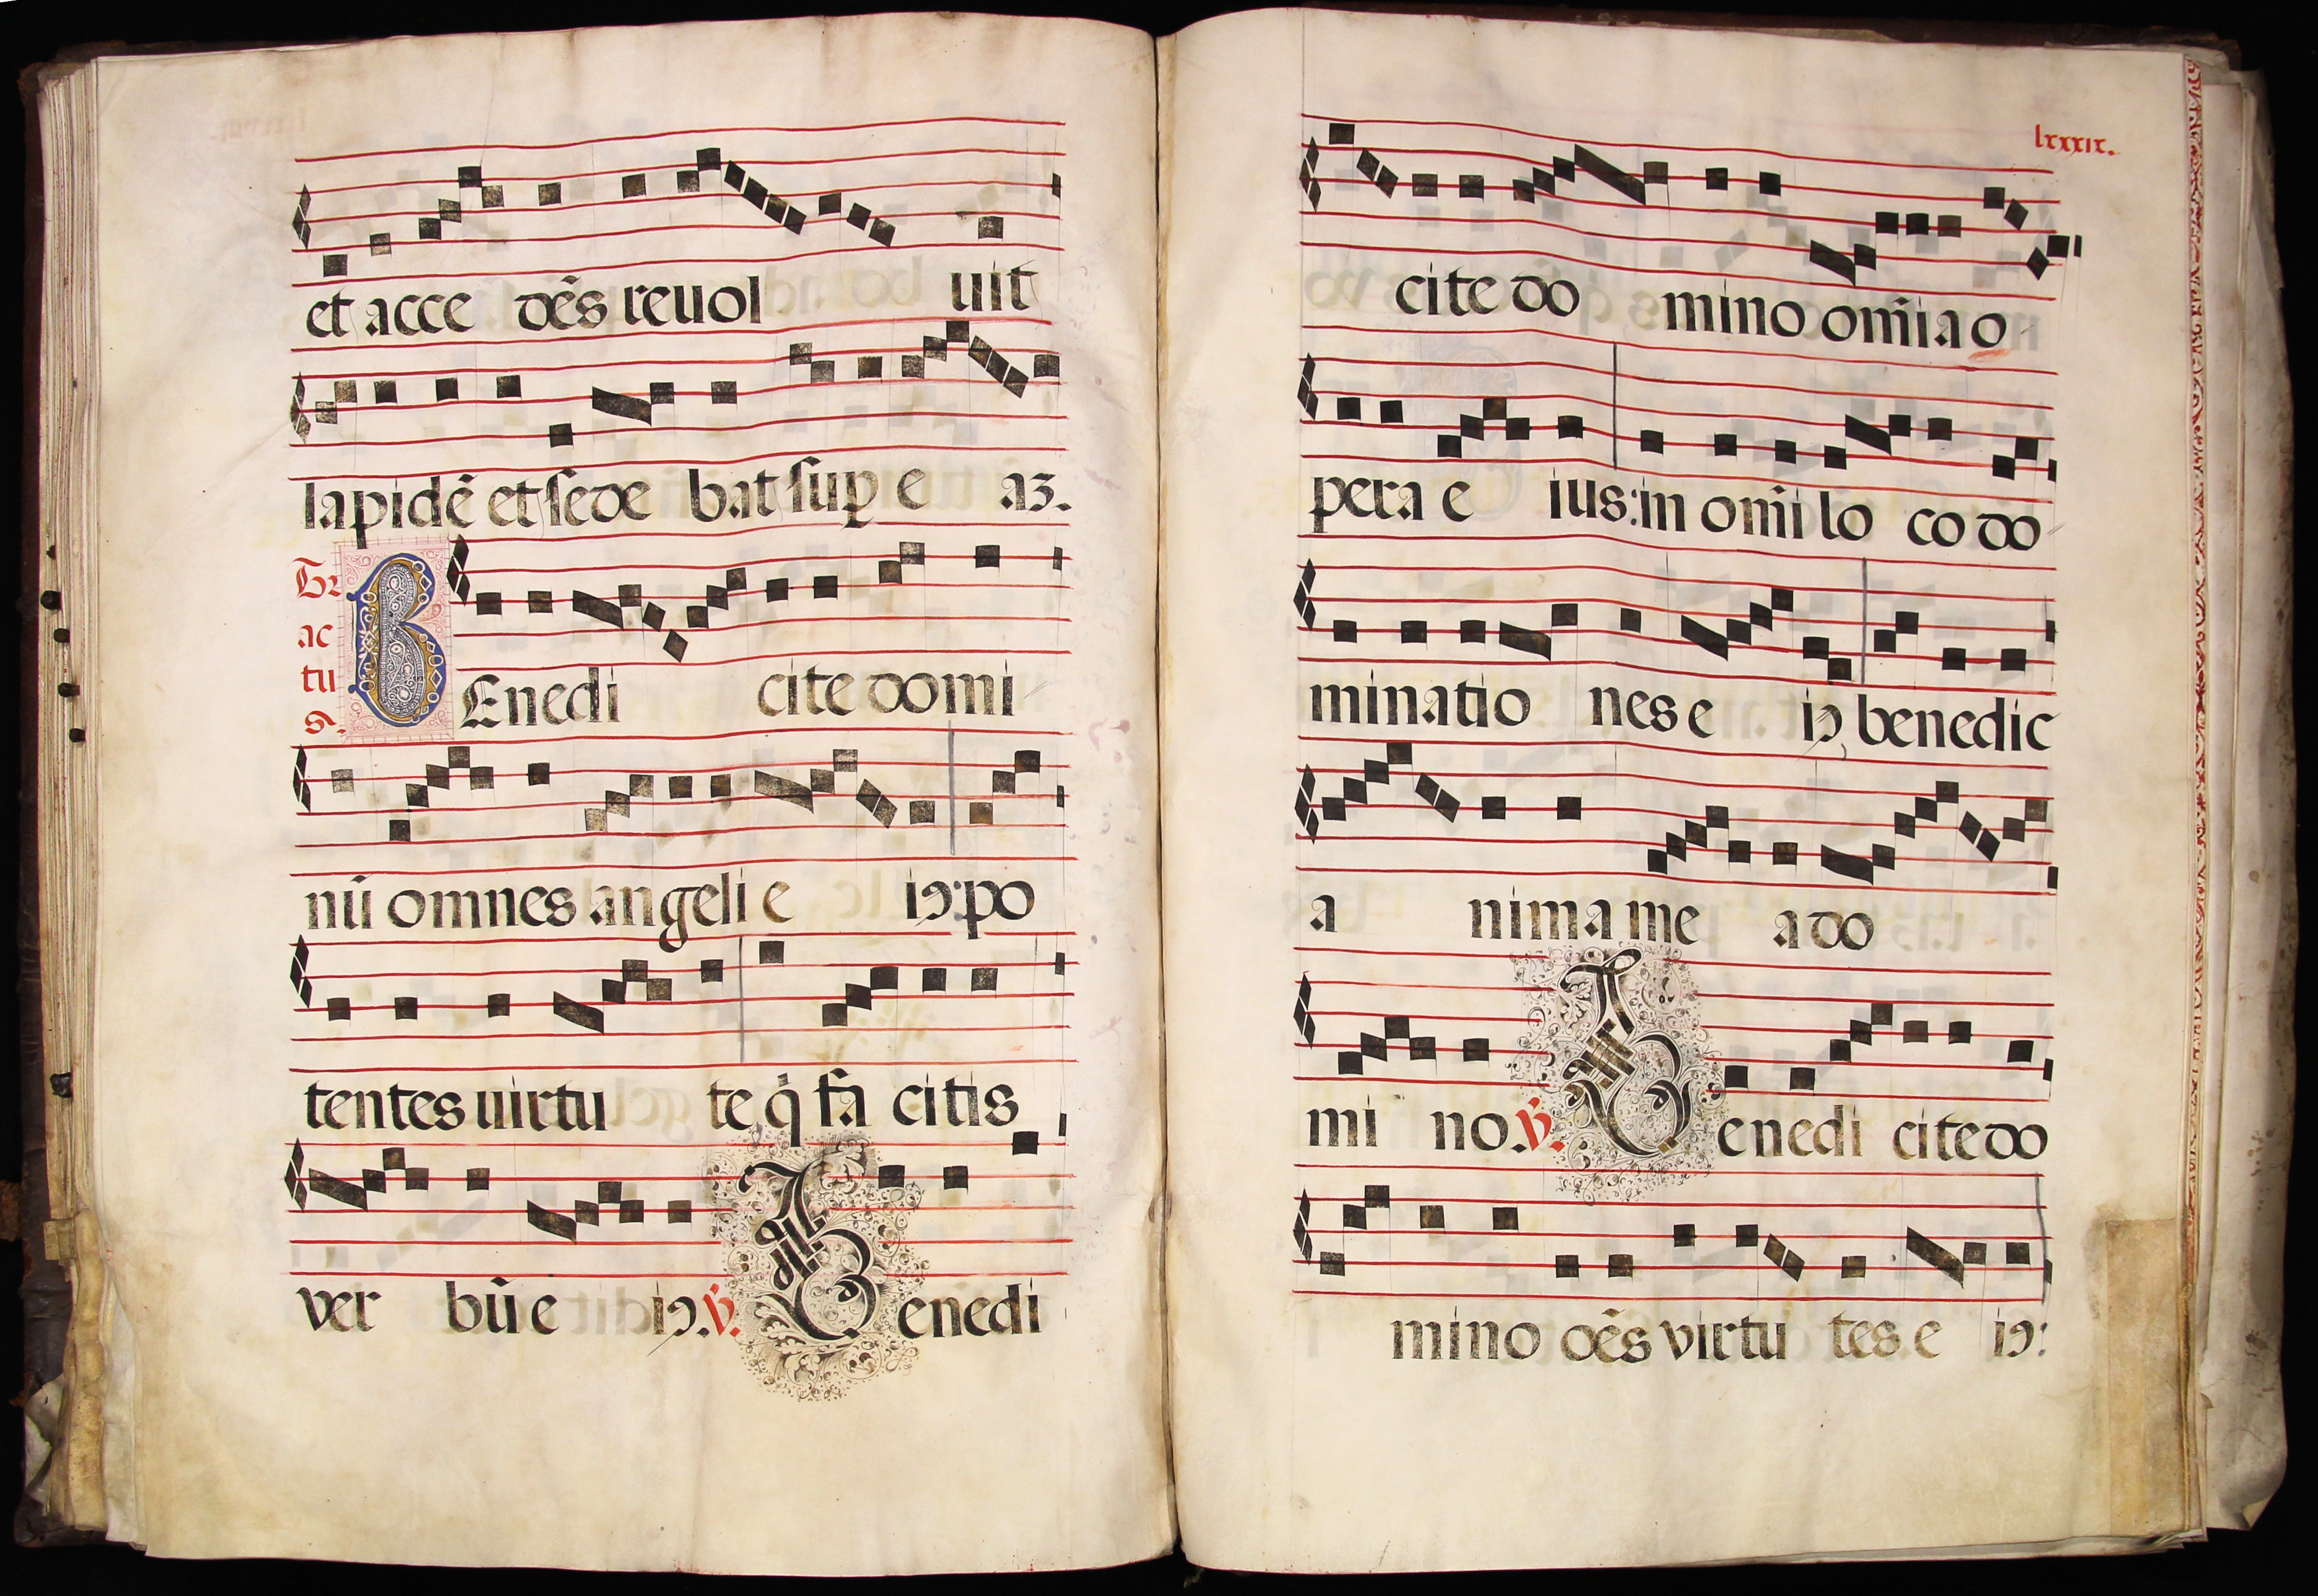 et acce dẽs reuol uit
lapidẽ et sede bat suꝑ e aʒ.
Tractus.
BEnedi cite domi
nũ omnes angeli e iꝰ: po
tentes uirtu te q̇ fa citis
ver bũ e iꝰ. ℣. Benedi
lxxxix.
cite do mino om̃ia o
pera e ius: in om̃i lo co do
minatio nes e iꝰ, benedic
a nima me a do
mi no. ℣. Benedi cite do
mino oẽs virtu tes e iꝰ: